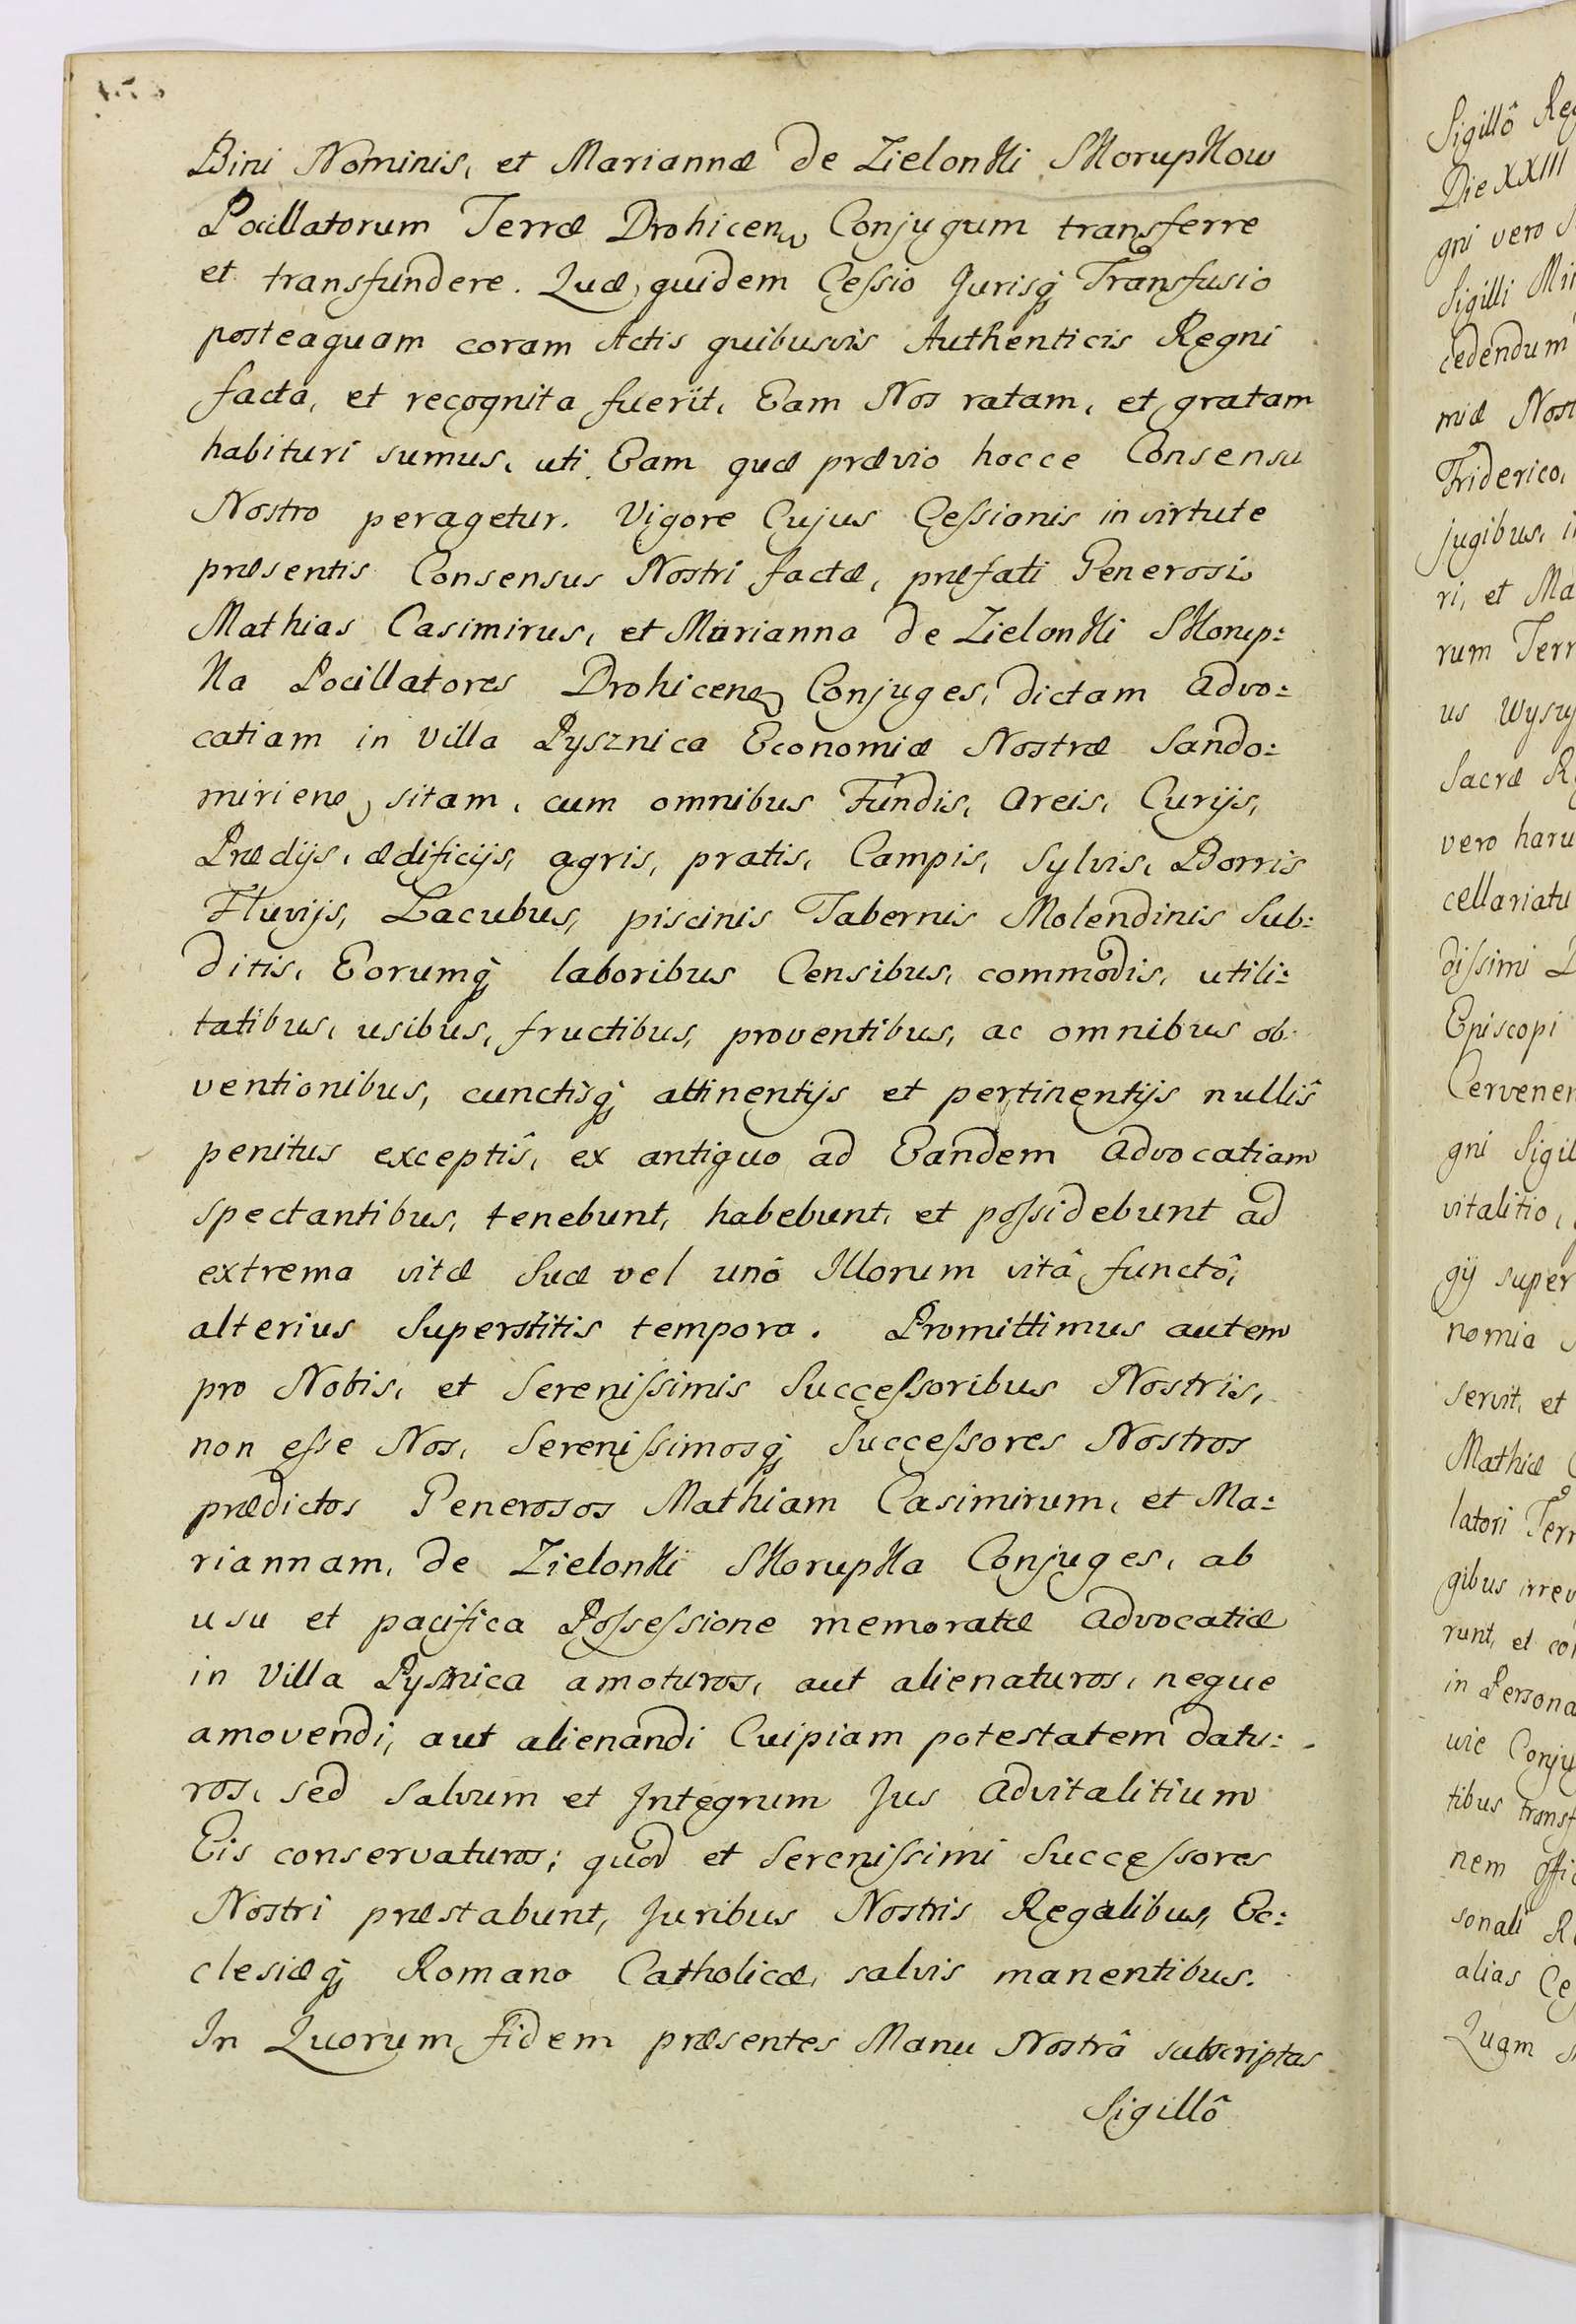 Bini Nominis, et Mariannæ de Zielonki Skorupkow
Pocillatorum Terræ Drohicens Conjugum transferre
et transfundere. Quæ quidem Cessio Jurisq Transfusio
posteaquam coram Actis quibusvis Authenticis Regni
facta, et recognita fuerit, Eam Nos ratam, et gratam
habituri sumus, uti Eam quæ prævio hocce Consensu
Nostro peragetur. Vigore Cujus Cessionis in virtute
præsentis Consensus Nostri factæ, præfati Generosi
Mathias Casimirus, et Marianna de Zielonki Skorup:
ka Pocillatores Drohicenes Conjuges, dictam Advo:
catiam in Villa Pysznica Economiæ Nostræ Sando:
miriens, sitam, cum omnibus Fundis, Areis, Curijs,
Prædijs, ædificijs, agris, pratis, Campis, Sylvis, Borris
Fluvijs, Lacubus, piscinis Tabernis Molendinis Sub:
ditis, Eorumq laboribus Censibus, commodis, utili:
tatibus, usibus, fructibus, proventibus, ac omnibus ob:
ventionibus, cunctisq attinentijs et pertinentijs nullis
penitus exceptis, ex antiquo ad Eandem Advocatiam
spectantibus, tenebunt, habebunt, et possidebunt ad
extrema vitæ Suæ vel unô Illorum vitâ functô,
alterius Superstitis tempora. Promittimus autem
pro Nobis, et Serenissimis Successoribus Nostris,
non esse Nos, Serenissimosq Successores Nostros
prædictos Generosos Mathiam Casimirum, et Ma:
riannam, de Zielonki Skorupka Conjuges, ab
usu et pacifica Possessione memoratæ Advocatiæ
in Villa Pysznica amoturos, aut alienaturos, neque
amovendi, aut alienandi Cuipiam potestatem datu:
ros, sed Salvum et Integrum Jus Advitalitium
Eis conservaturos; quod et Serenissimi Successores
Nostri præstabunt, Juribus Nostris Regalibus, Ec:
clesiæq Romano Catholicæ, salvis manentibus.
In Quorum fidem præsentes Manu Nostrâ subscriptas
Sigillô
Sigillô
Die XXIII
gni vero
Sigilli
cedendum
miæ
Friderico,
jugibus,
ri, et
rum
us
Sacræ
vero
cellariatu
dissimi
Episcopi
gni
vitalitio,
gij super
nomia
servit, et
Mathiæ
latori
gibus
runt, et
in
tibus
nem
sonali
alias
Quam